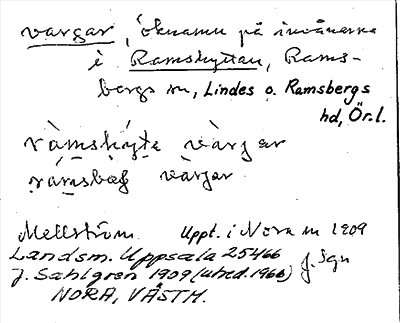 vargar, öknamn på invånarna
i Ramshyttan, Rams-
bergs sn, Lindes o. Ramsbergs
hd, Ör.l.
ràmshýte vàrgar
ràmsbæg vàrgar
Mellström. Uppt. i Nora sn 1909
Landsm. Uppsala 254:66
J. Sahlgren 1909 (uhed. 1966) J. Sgn
NORA, VÄSTM.